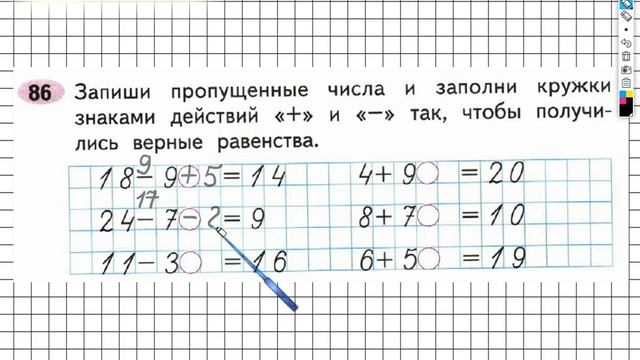 86 Запиши пропущенные числа и заполни кружки
знаками действий «+» и «−» так, чтобы получи-
лись верные равенства.
9
18 − 9 + 5 = 14 4 + 9 = 20
17
24 − 7 − 2 = 9 8 + 7 = 10
11 − 3 = 16 6 + 5 = 19